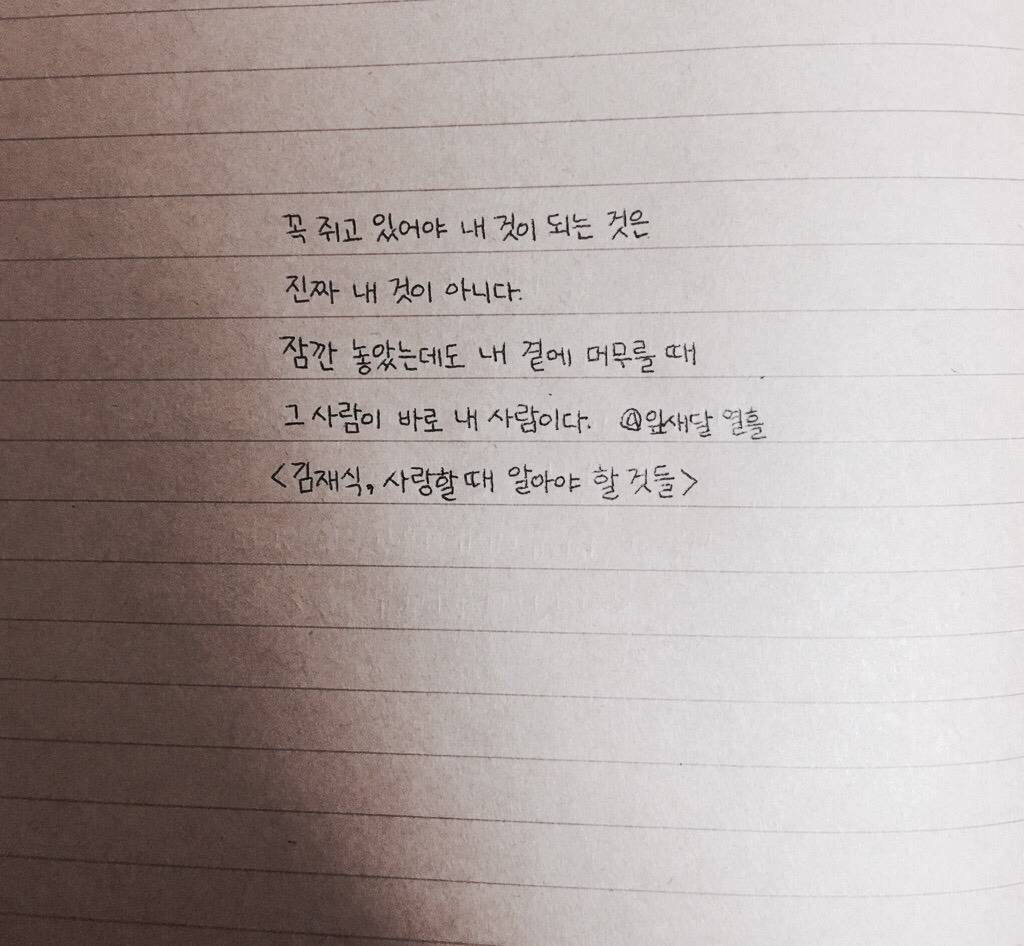 꼭 쥐고 있어야 내 것이 되는 것은
진짜 내 것이 아니다.
잠깐 놓았는데도 내 곁에 머무를 때
그 사람이 바로 내 사람이다. @잎새달 열흘
<김재식, 사랑할 때 알아야 할 것들>